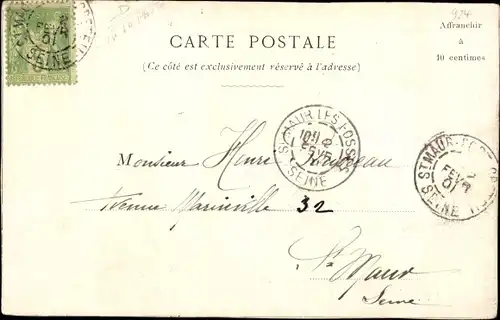 924
CARTE POSTALE
(Ce côté est exclusivement réservé à l'adresse)
Affranchir
à
10 centimes
ST MAUR-LES-FOSSÉS
FEVR
01
SEINE
ST MAUR-LES-FOSSÉS
2
FEVR
SEINE
ST MAUR-LES-FOSSÉS
2
FEVR
01
SEINE
Monsieur Henri
Avenue Marinville 32
St Maur
Seine